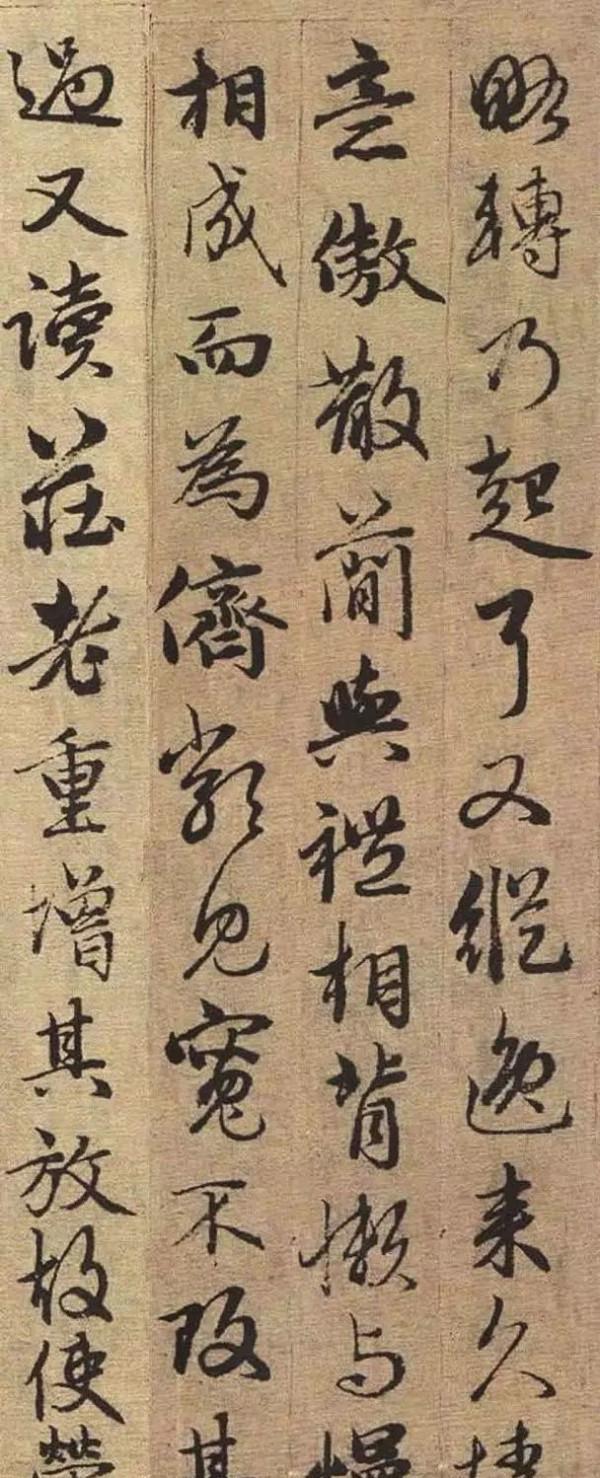 略轉乃起了又縱逸来久
意傲散簡與禮相背懶与慢
相成而為儕類見寬不攻其
過又读莊老重增其放故使榮